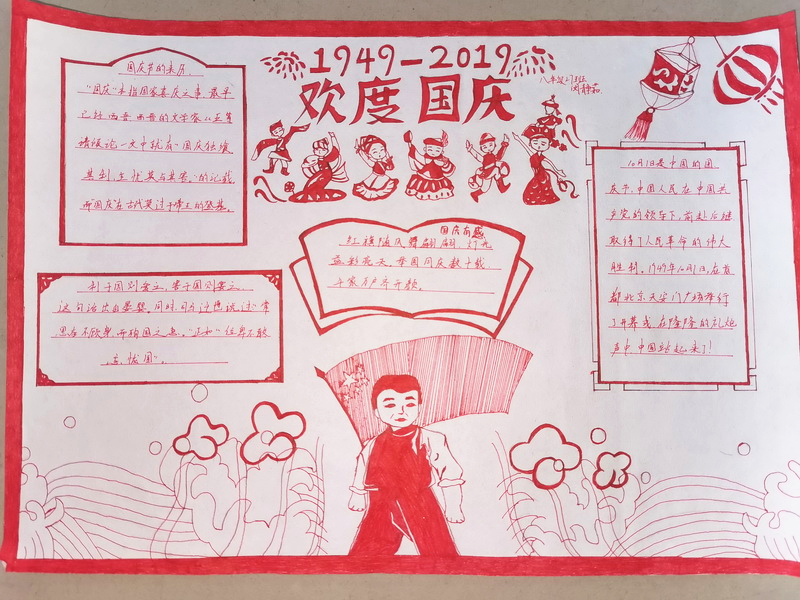 1949-2019
欢度国庆
八年级
国庆节的来历
"国庆"本指国家喜庆之事,最早
已好西晋.西晋的文学家
一文中就有"国庆独飨
其利,主忧莫与其害."的记载
而国庆在古代莫过于帝王的登基.
利于国则
这句话出自晏婴.同时,司马迁也说过:常
思奋不顾身,而殉国之急.
忧国".
国庆有感
红旗随风舞翩翩,灯光
溢彩亮天.举国同庆
万户齐开颜.
10月1日是中国的国
庆节,中国人民在中国共
产党的领导下,前赴后继
取得了人民革命的伟大
胜利.1949年10月1日,在首
都北京天安门广场举行
了开幕式,在隆隆的礼炮
声中,中国站起来了!